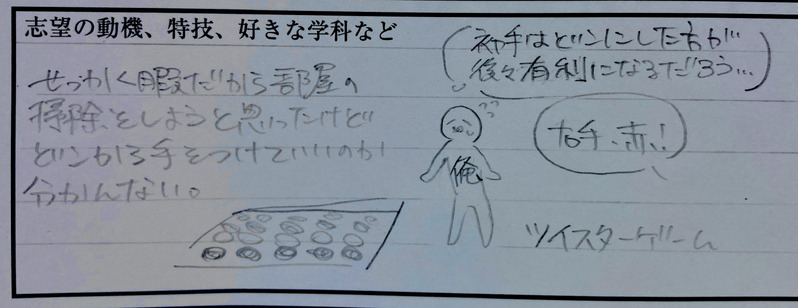 志望の動機、特技、好きな学科など
せっかく暇だから部屋の
掃除をしようと思ったけど
どこから手をつけていいのか
分かんない。
初手はどこにした方が
後々有利になるだろう…
右手、赤!
俺
ツイスターゲーム